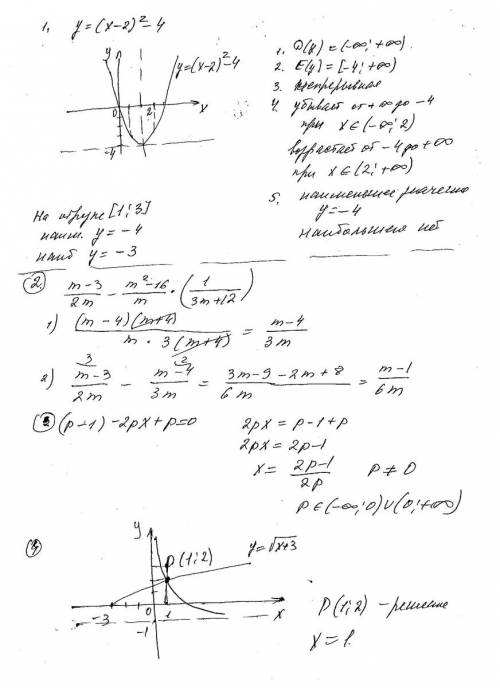 1, y = (x-2)² - 4
y
y=(x-2)²-4
0
2
x
-4
1. D(y) = (-∞; +∞)
2. E(y) = [-4; +∞)
3. непрерывная
4. убывает от +∞ до -4
при x∈(-∞; 2)
возрастает от -4 до +∞
при x∈(2; +∞)
5. наименьшее значение
y = -4
наибольшего нет
На отрезке [1; 3]
наим. y = -4
наиб y = -3
2. (m-3)/(2m) - (m²-16)/m · (1/(3m+12))
1) (m-4)(m+4)/(m · 3(m+4)) = (m-4)/(3m)
2) ³(m-3)/(2m) - ²(m-4)/(3m) = (3m-9-2m+8)/(6m) = (m-1)/(6m)
(p-1) - 2px + p = 0
2px = p-1+p
2px = 2p-1
x = (2p-1)/(2p) p ≠ 0
p∈(-∞; 0)∪(0; +∞)
y
P(1; 2)
y=√(x+3)
-3
0
1
x
-1
P(1; 2) - решение
x = 1.